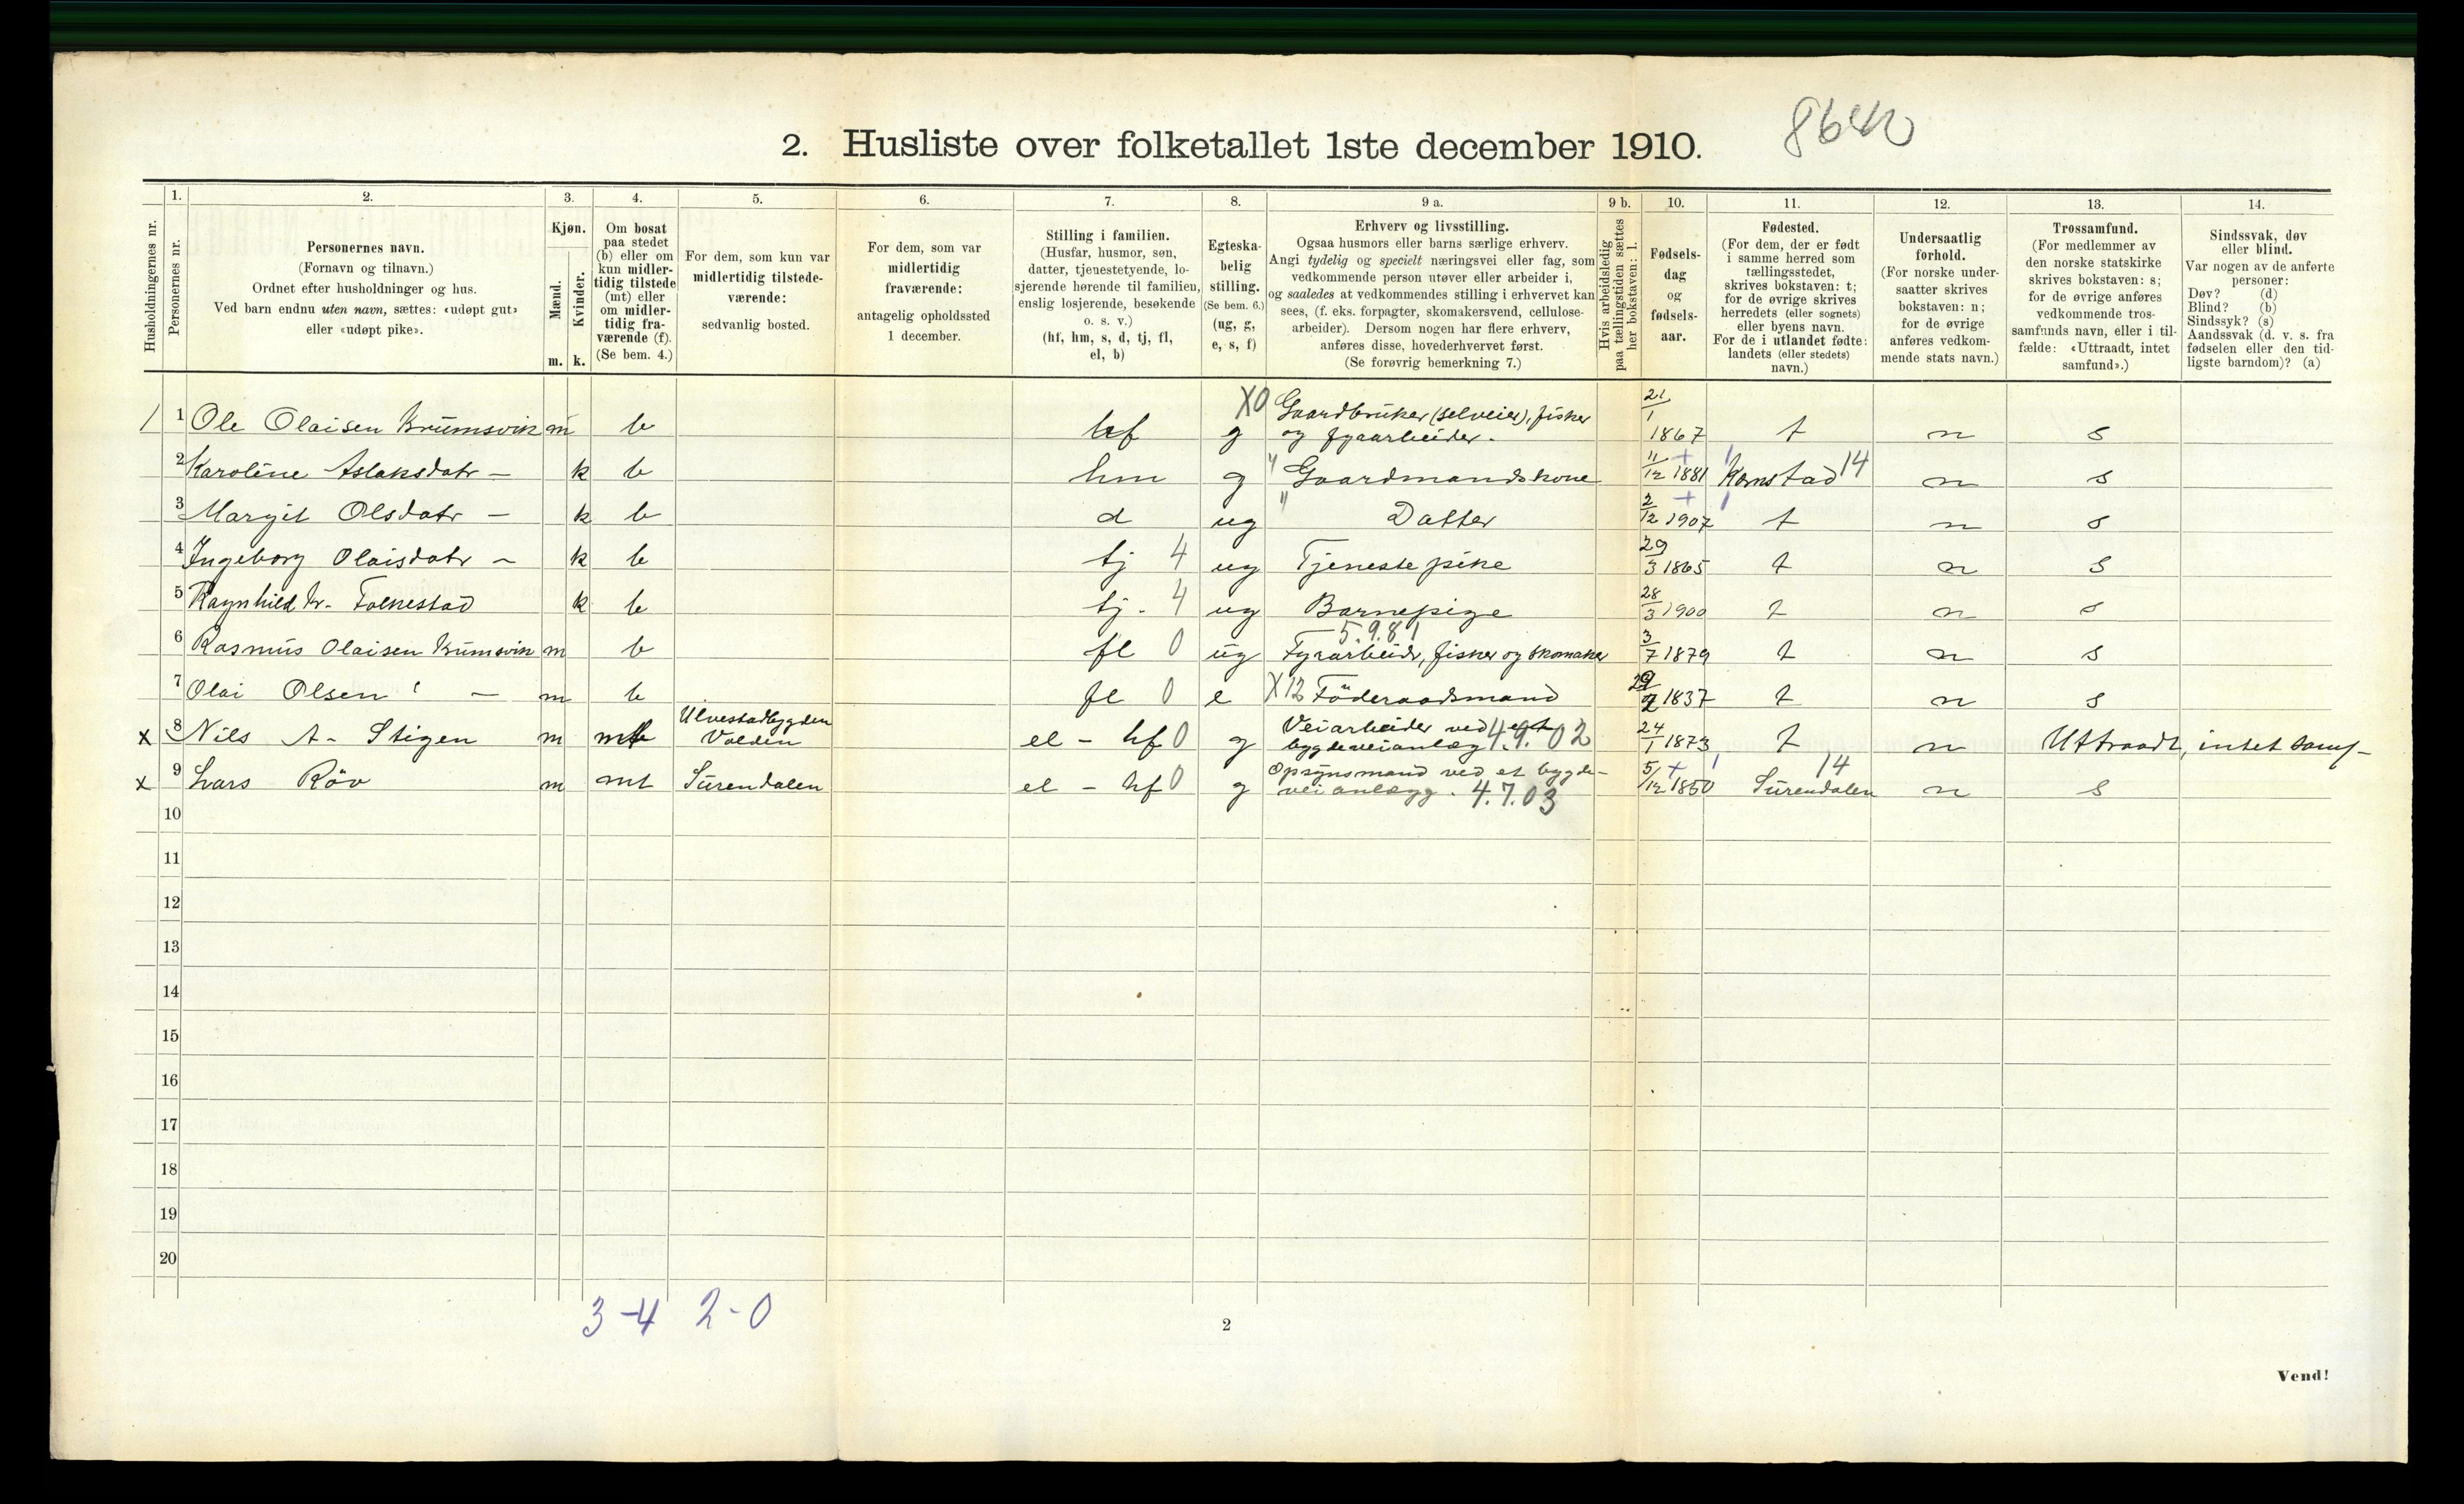 8640
2. Husliste over folketallet 1ste december 1910.
Husholdningernes nr.
1. Personernes nr.
2. Personernes navn.
(Fornavn og tilnavn.)
Ordnet efter husholdninger og hus.
Ved barn endnu uten navn, sættes: «udøpt gut»
eller «udøpt pike».
3. Kjøn.
Mænd. m.
Kvinder. k.
4. Om bosat
paa stedet
(b) eller om
kun midler-
tidig tilstede
(mt) eller
om midler-
tidig fra-
værende (f).
(Se bem. 4.)
5. For dem, som kun var
midlertidig tilstede-
værende:
sedvanlig bosted.
6. For dem, som var
midlertidig
fraværende:
antagelig opholdssted
1 december.
7. Stilling i familien.
(Husfar, husmor, søn,
datter, tjenestetyende, lo-
sjerende hørende til familien,
enslig losjerende, besøkende
o. s. v.)
(hf, hm, s, d, tj, fl,
el, b)
8. Egteska-
belig
stilling.
(Se bem. 6.)
(ug, g,
e, s, f)
9 a. Erhverv og livsstilling.
Ogsaa husmors eller barns særlige erhverv.
Angi tydelig og specielt næringsvei eller fag, som
vedkommende person utøver eller arbeider i,
og saaledes at vedkommendes stilling i erhvervet kan
sees, (f. eks. forpagter, skomakersvend, cellulose-
arbeider). Dersom nogen har flere erhverv,
anføres disse, hovederhvervet først.
(Se forøvrig bemerkning 7.)
9 b. Hvis arbeidsledig
paa tællingstiden sættes
her bokstaven: l.
10. Fødsels-
dag
og
fødsels-
aar.
11. Fødested.
(For dem, der er født
i samme herred som
tællingsstedet,
skrives bokstaven: t;
for de øvrige skrives
herredets (eller sognets)
eller byens navn.
For de i utlandet fødte:
landets (eller stedets)
navn.)
12. Undersaatlig
forhold.
(For norske under-
saatter skrives
bokstaven: n;
for de øvrige
anføres vedkom-
mende stats navn.)
13. Trossamfund.
(For medlemmer av
den norske statskirke
skrives bokstaven: s;
for de øvrige anføres
vedkommende tros-
samfunds navn, eller i til-
fælde: «Uttraadt, intet
samfund».)
14. Sindssvak, døv
eller blind.
Var nogen av de anførte
personer:
Døv? (d)
Blind? (b)
Sindssyk? (s)
Aandssvak (d. v. s. fra
fødselen eller den tid-
ligste barndom)? (a)
1 1 Ole Olaisen Krumsvik m b hf g X0 Gaardbruker (selveier), fisker
og fyraarbeider. 21/1 1867 t n s
2 Karoline Aslaksdatr – k b hm g " Gaardmandskone 11/12 1881 Kornstad 14 n s
3 Margit Olsdatr – k b d ug " Datter 2/12 1907 t n s
4 Ingeborg Olaisdatr – k b tj 4 ug Tjenestepike 29/3 1865 t n s
5 Ragnhild Kr. Folkestad k b tj. 4 ug Barnepige 28/3 1900 t n s
6 Rasmus Olaisen Krumsvik m b fl 0 ug 5.9.81
Fyrarbeidr, fisker og skomaker 3/7 1879 t n s
7 Olai Olsen – m b fl 0 e X12 Föderaadsmand 29/ 1837 t n s
x 8 Nils A. Stigen m mt Ulvestadbygden
Volden el - hf 0 g Veiarbeider ved et
bygdeveianlæg 4.9.02 24/1 1873 t n Uttraadt, intet samf-
x 9 Lars Röv m mt Surendalen el - hf 0 g Opsynsmand ved et bygde-
veianlægg. 4.7.03 5/12 1850 Surendalen 14 n s
10
11
12
13
14
15
16
17
18
19
20
3-4 2-0
2
Vend!